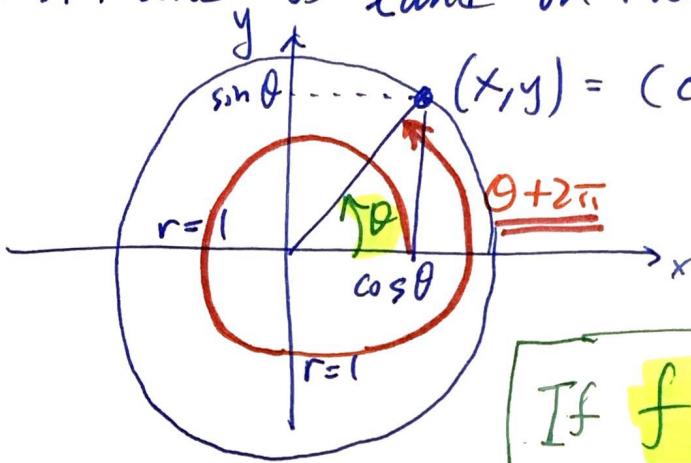 y
sin θ
(x,y) = (c
θ+2π
r=1
θ
x
cos θ
r=1
If f